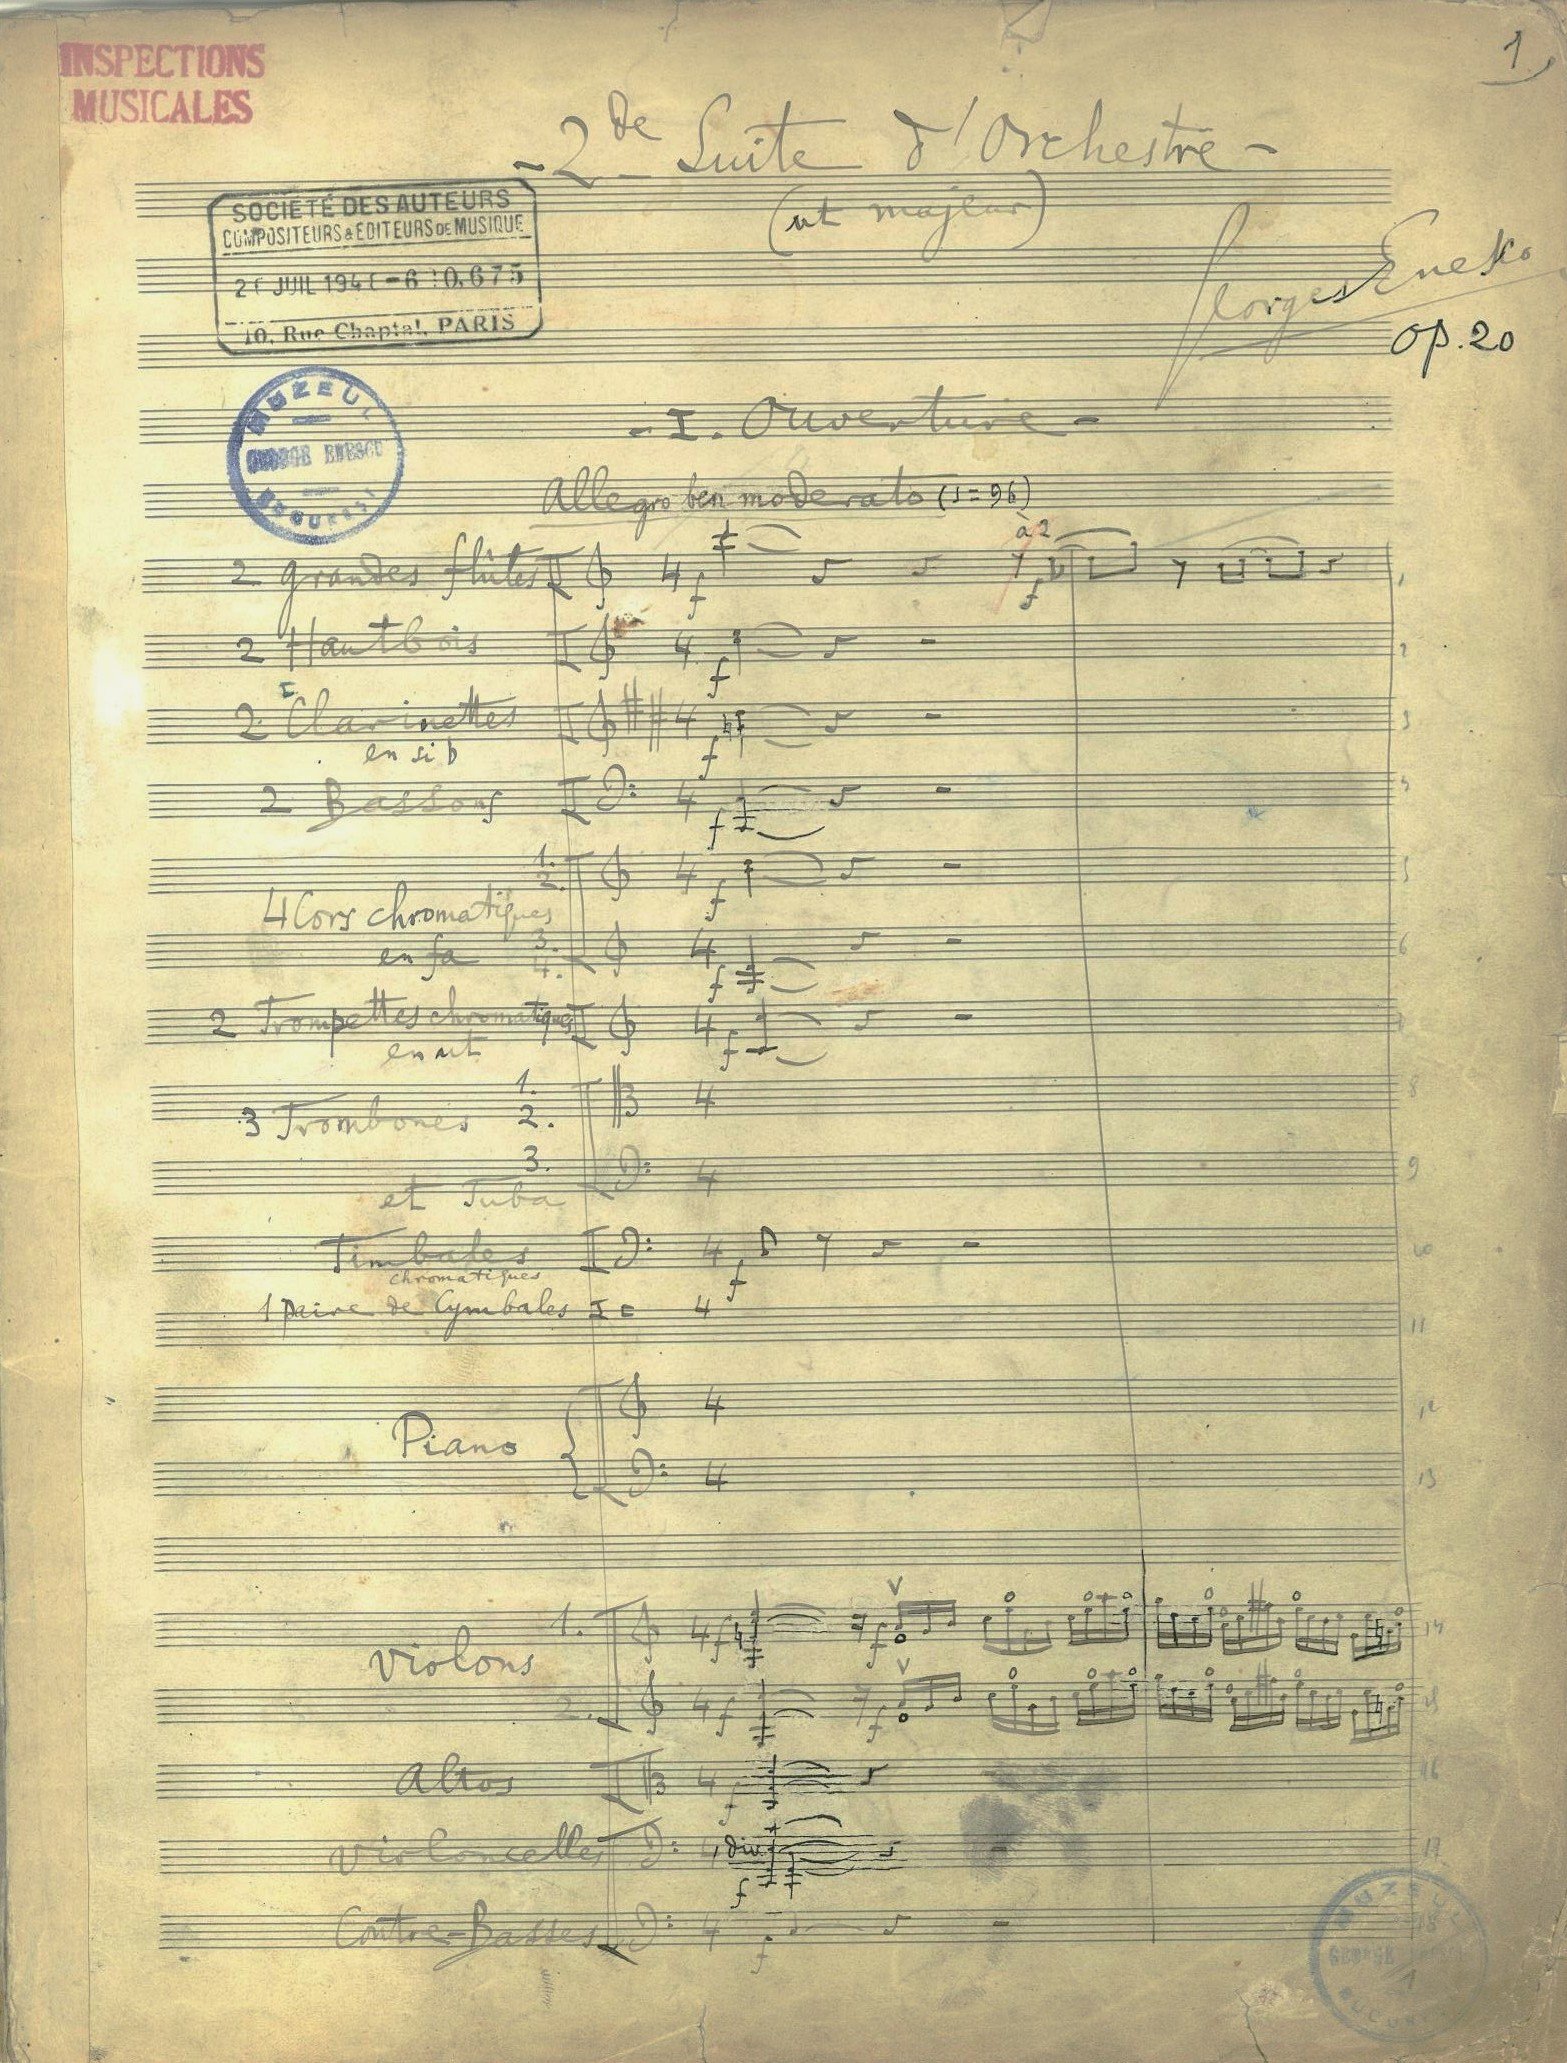 1
INSPECTIONS
MUSICALES
- 2de Suite d'Orchestre -
(ut majeur)
SOCIÉTÉ DES AUTEURS
COMPOSITEURS & EDITEURS DE MUSIQUE
JUIL
10, Rue Chaptal, PARIS
Georges Enesko
op. 20
MUZEUL
GEORGE ENESCU
BUCUREȘTI
- I. Ouverture -
Allegro ben moderato (♩= 96)
à 2
2 grandes flûtes 4 f f 1
2 Hautbois 4 f 2
2 Clarinettes 4 f 3
en si b
2 Bassons 4 f 4
1.
2. 4 f 5
4 Cors chromatiques
en fa 3.
4. 4 f 6
2 Trompettes chromatiques 4 f 7
en ut
1.
3 Trombones 2. 4 8
3. 4 9
et Tuba
Timbales 4 f 10
chromatiques
1 paire de Cymbales 4 11
4 12
Piano
4 13
1. 4 f f 14
Violons
2. 4 f f 15
Altos 4 f 16
Violoncelles 4 div. f 17
Contre-Basses 4 f 18
MUZEUL
GEORGE
BUCUREȘTI